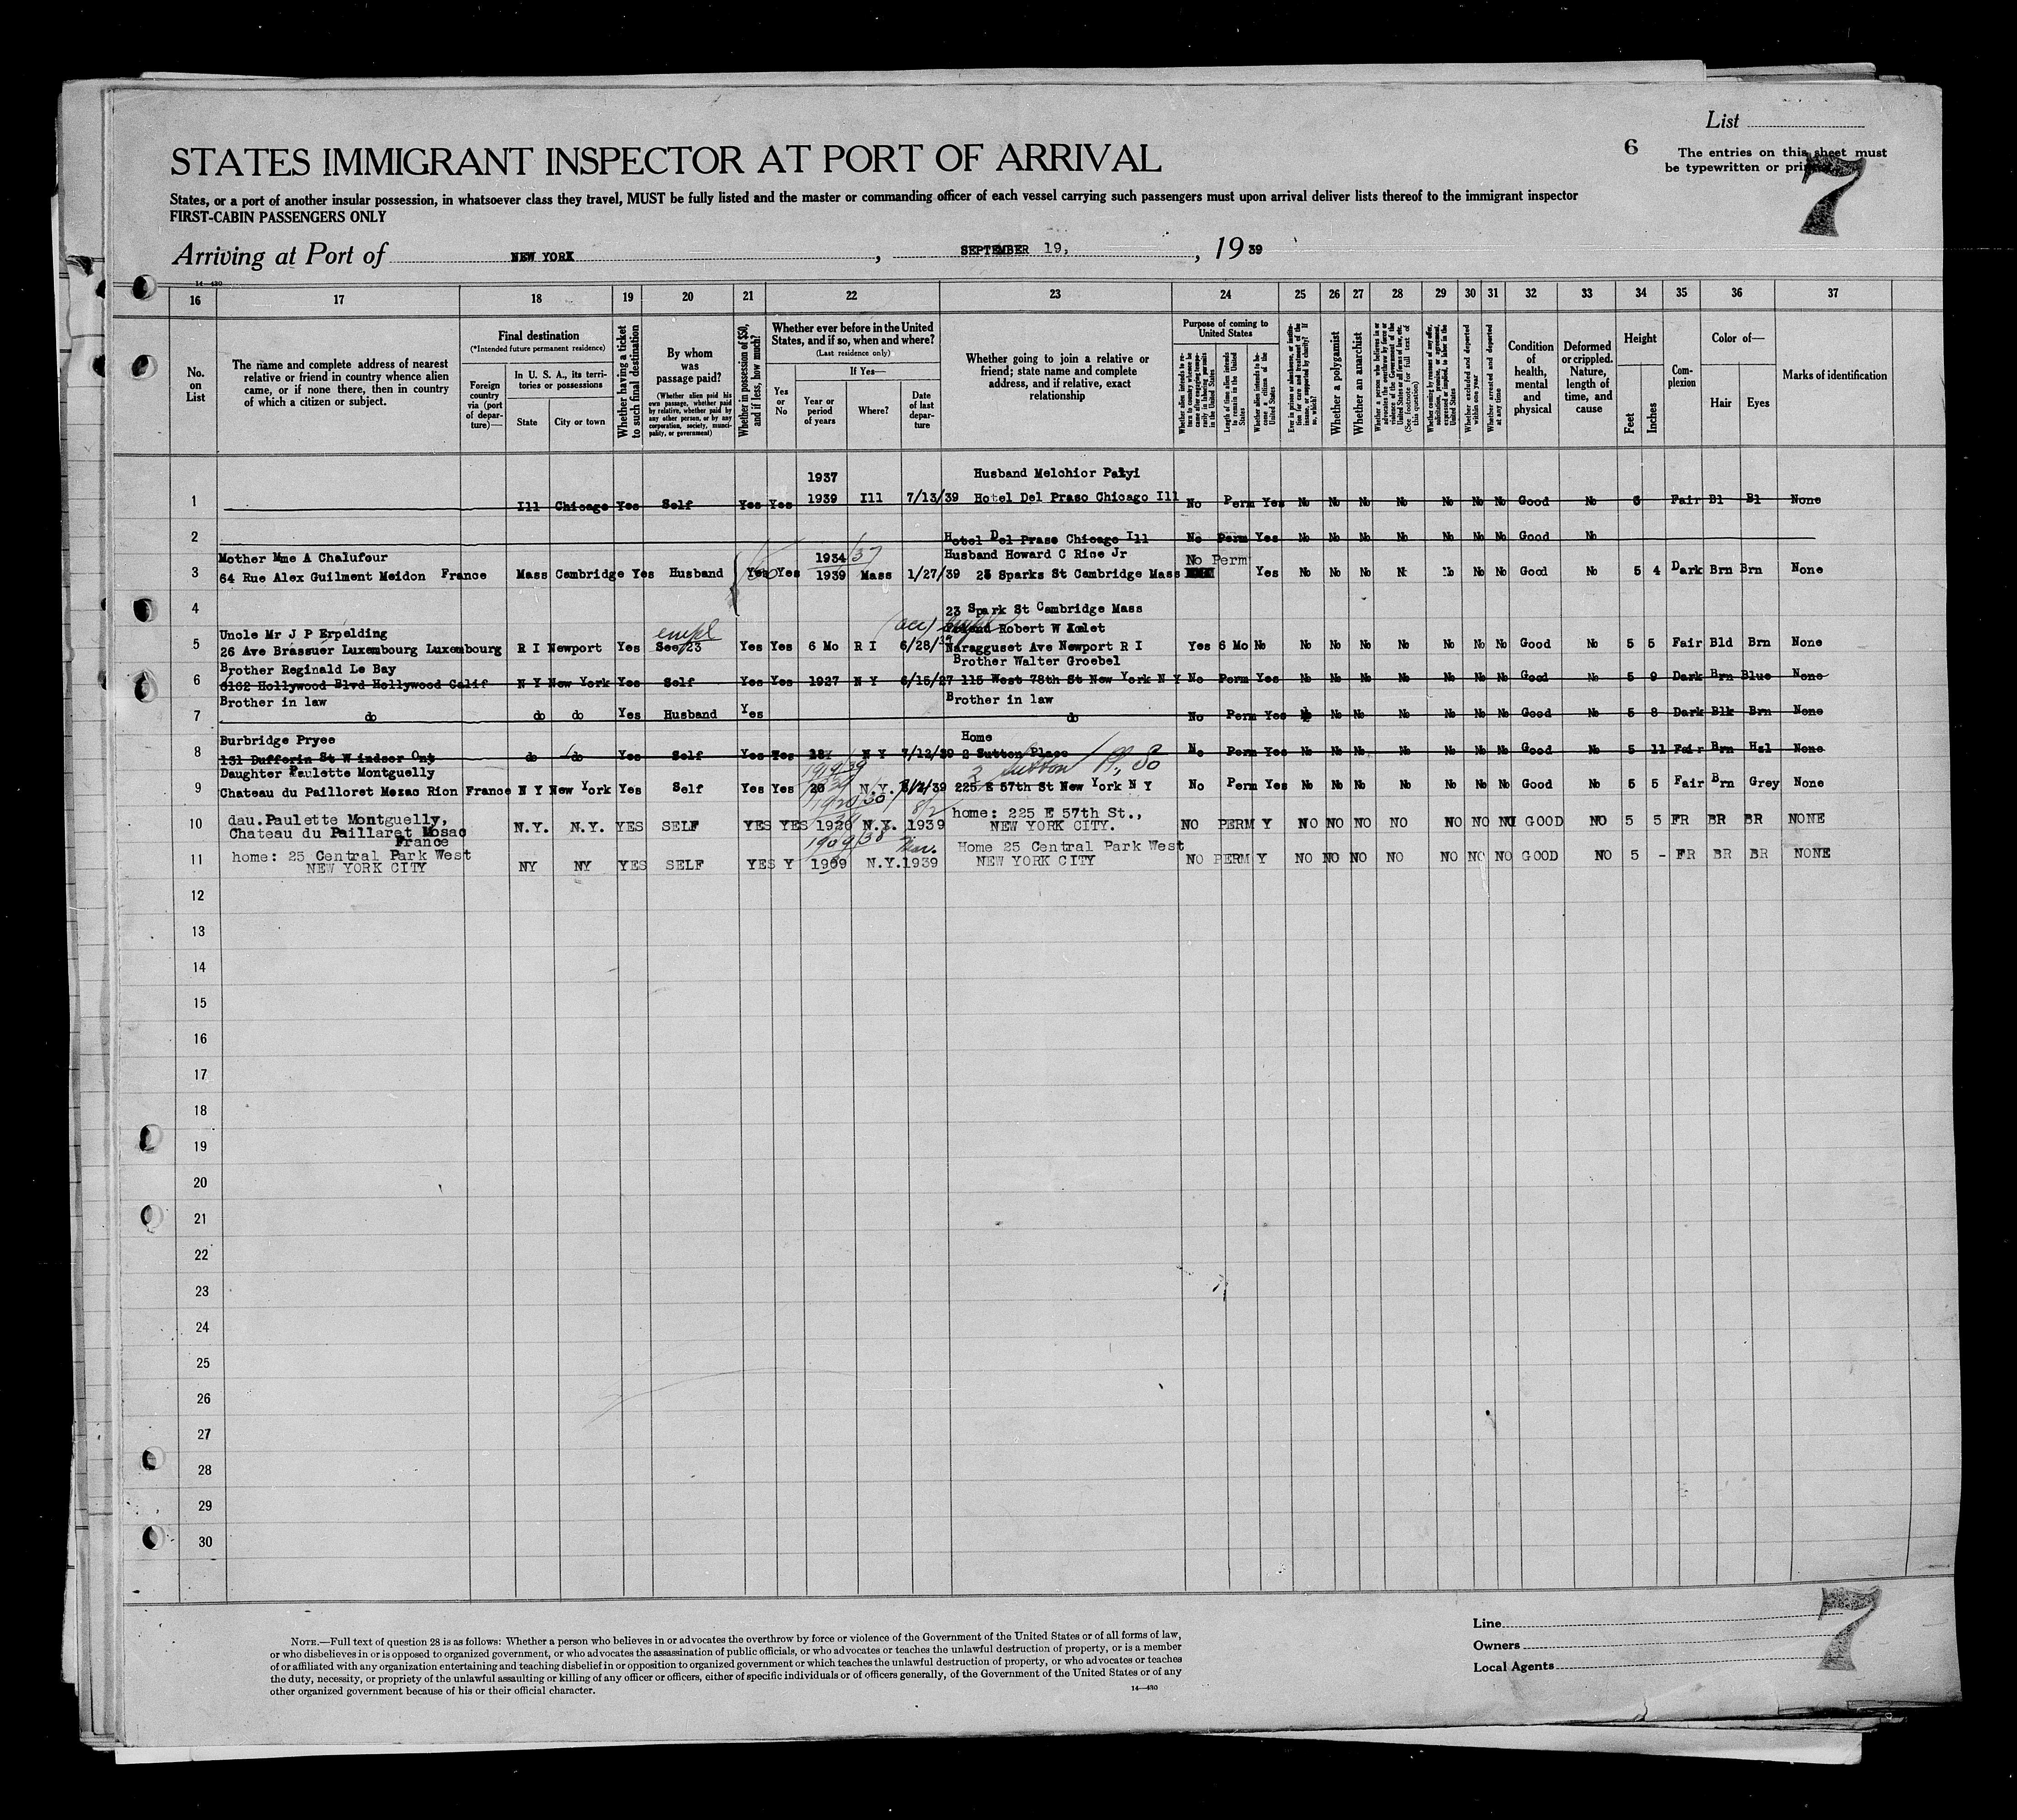 List
STATES IMMIGRANT INSPECTOR AT PORT OF ARRIVAL
6
The entries on this sheet must
be typewritten or
7
States, or a port of another insular possession, in whatsoever class they travel, MUST be fully listed and the master or commanding officer of each vessel carrying such passengers must upon arrival deliver lists thereof to the immigrant inspector
FIRST-CABIN PASSENGERS ONLY
Arriving at Port of NEW YORK, SEPTEMBER 19, 1939
14—430
16 17 18 19 20 21 22 23 24 25 26 27 28 29 30 31 32 33 34 35 36 37
No. on List
The name and complete address of nearest relative or friend in country whence alien came, or if none there, then in country of which a citizen or subject.
Final destination
(*Intended future permanent residence)
Foreign country via (port of departure)—
In U. S. A., its territories or possessions
State
City or town
Whether having a ticket to such final destination
By whom was passage paid?
(Whether alien paid his own passage, whether paid by relative, whether paid by any other person, or by any corporation, society, municipality, or government)
Whether in possession of $50, and if less, how much?
Whether ever before in the United States, and if so, when and where?
(Last residence only)
Yes or No
If Yes—
Year or period of years
Where?
Date of last departure
Whether going to join a relative or friend; state name and complete address, and if relative, exact relationship
Purpose of coming to United States
Length of time alien intends to remain in the United States
Whether alien intends to become a citizen of the United States
Whether a polygamist
Whether an anarchist
(See footnote for full text of this question)
Whether excluded and deported within one year
Whether arrested and deported at any time
Condition of health, mental and physical
Deformed or crippled. Nature, length of time, and cause
Height
Feet
Inches
Complexion
Color of—
Hair
Eyes
Marks of identification
1937
Husband Melchior Palyi
1 Ill Chicago Yes Self Yes Yes 1939 Ill 7/13/39 Hotel Del Praso Chicago Ill No Perm Yes No No No No No No No Good No 6 Fair Bl Bl None
2 Hotel Del Praso Chicago Ill No Perm Yes No No No No No No No Good No
Mother Mme A Chalufour 1934/37 Husband Howard C Rice Jr No Perm
3 64 Rue Alex Guilment Meidon France Mass Cambridge Yes Husband Yes Yes 1939 Mass 1/27/39 25 Sparks St Cambridge Mass Yes No No No N No No No Good No 5 4 Dark Brn Brn None
4 23 Spark St Cambridge Mass
Uncle Mr J P Erpelding empl Robert W
5 26 Ave Brassuer Luxembourg Luxembourg R I Newport Yes See 23 Yes Yes 6 Mo R I 6/28/39 Naragguset Ave Newport R I Yes 6 Mo No No No No No No No No Good No 5 5 Fair Bld Brn None
Brother Reginald Le Bay Brother Walter Groebel
6 6162 Hollywood Blvd Hollywood Calif N Y New York Yes Self Yes Yes 1927 N Y 6/15/27 115 West 78th St New York N Y No Perm Yes No No No No No No No Good No 5 9 Dark Brn Blue None
Brother in law Brother in law
7 do do do Yes Husband Yes do No Perm Yes No No No No No No Good No 5 8 Dark Blk Brn None
Burbridge Pryee Home
8 131 Dufferin St Windsor Ont do do Yes Self Yes Yes N Y 7/12/39 2 Sutton Place No Perm Yes No No No No No No No Good No 5 11 Fair Brn Hzl None
Daughter Paulette Montguelly 1919/39 2 Sutton Pl, So
9 Chateau du Pailloret Mozac Rion France N Y New York Yes Self Yes Yes 20 N.Y. 225 E 57th St New York N Y No Perm Yes No No No No No No No Good No 5 5 Fair Brn Grey None
1920/30 8/2
10 dau. Paulette Montguelly, home: 225 E 57th St.,
Chateau du Paillaret Mosac N.Y. N.Y. YES SELF YES YES 1920 N.Y. 1939 NEW YORK CITY. NO PERM Y NO NO NO NO NO NO NO GOOD NO 5 5 FR BR BR NONE
France 1909/38
11 home: 25 Central Park West Home 25 Central Park West
NEW YORK CITY NY NY YES SELF YES Y 1909 N.Y. 1939 NEW YORK CITY NO PERM Y NO NO NO NO NO NO NO GOOD NO 5 - FR BR BR NONE
12
13
14
15
16
17
18
19
20
21
22
23
24
25
26
27
28
29
30
NOTE.—Full text of question 28 is as follows: Whether a person who believes in or advocates the overthrow by force or violence of the Government of the United States or of all forms of law,
or who disbelieves in or is opposed to organized government, or who advocates the assassination of public officials, or who advocates or teaches the unlawful destruction of property, or is a member
of or affiliated with any organization entertaining and teaching disbelief in or opposition to organized government or which teaches the unlawful destruction of property, or who advocates or teaches
the duty, necessity, or propriety of the unlawful assaulting or killing of any officer or officers, either of specific individuals or of officers generally, of the Government of the United States or of any
other organized government because of his or their official character.
14—430
Line
Owners
Local Agents
7